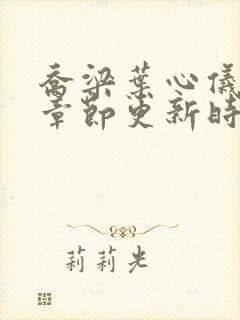 乔梁葉心儀
章節更新時
莉莉光